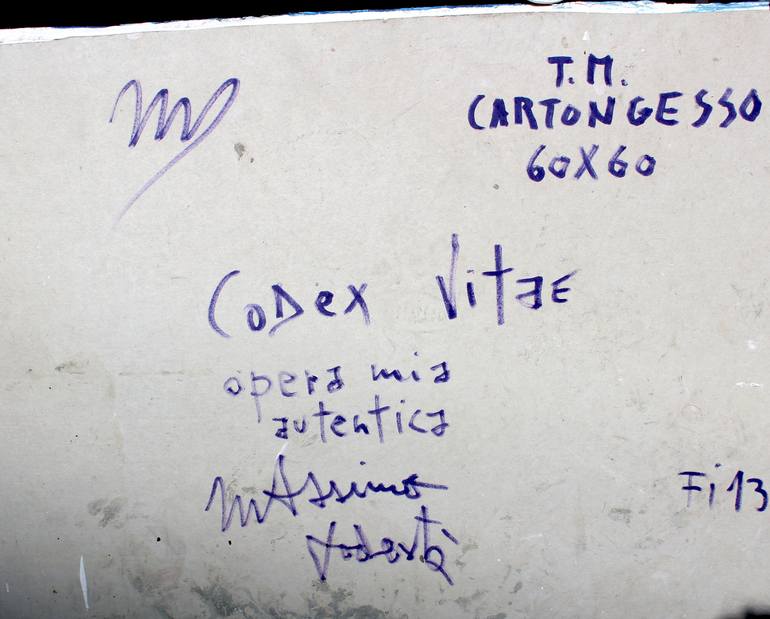 T.M.
CARTONGESSO
60X60
CODEX VITAE
opera mia
autentica
Massimo
Podestà
Fi 13